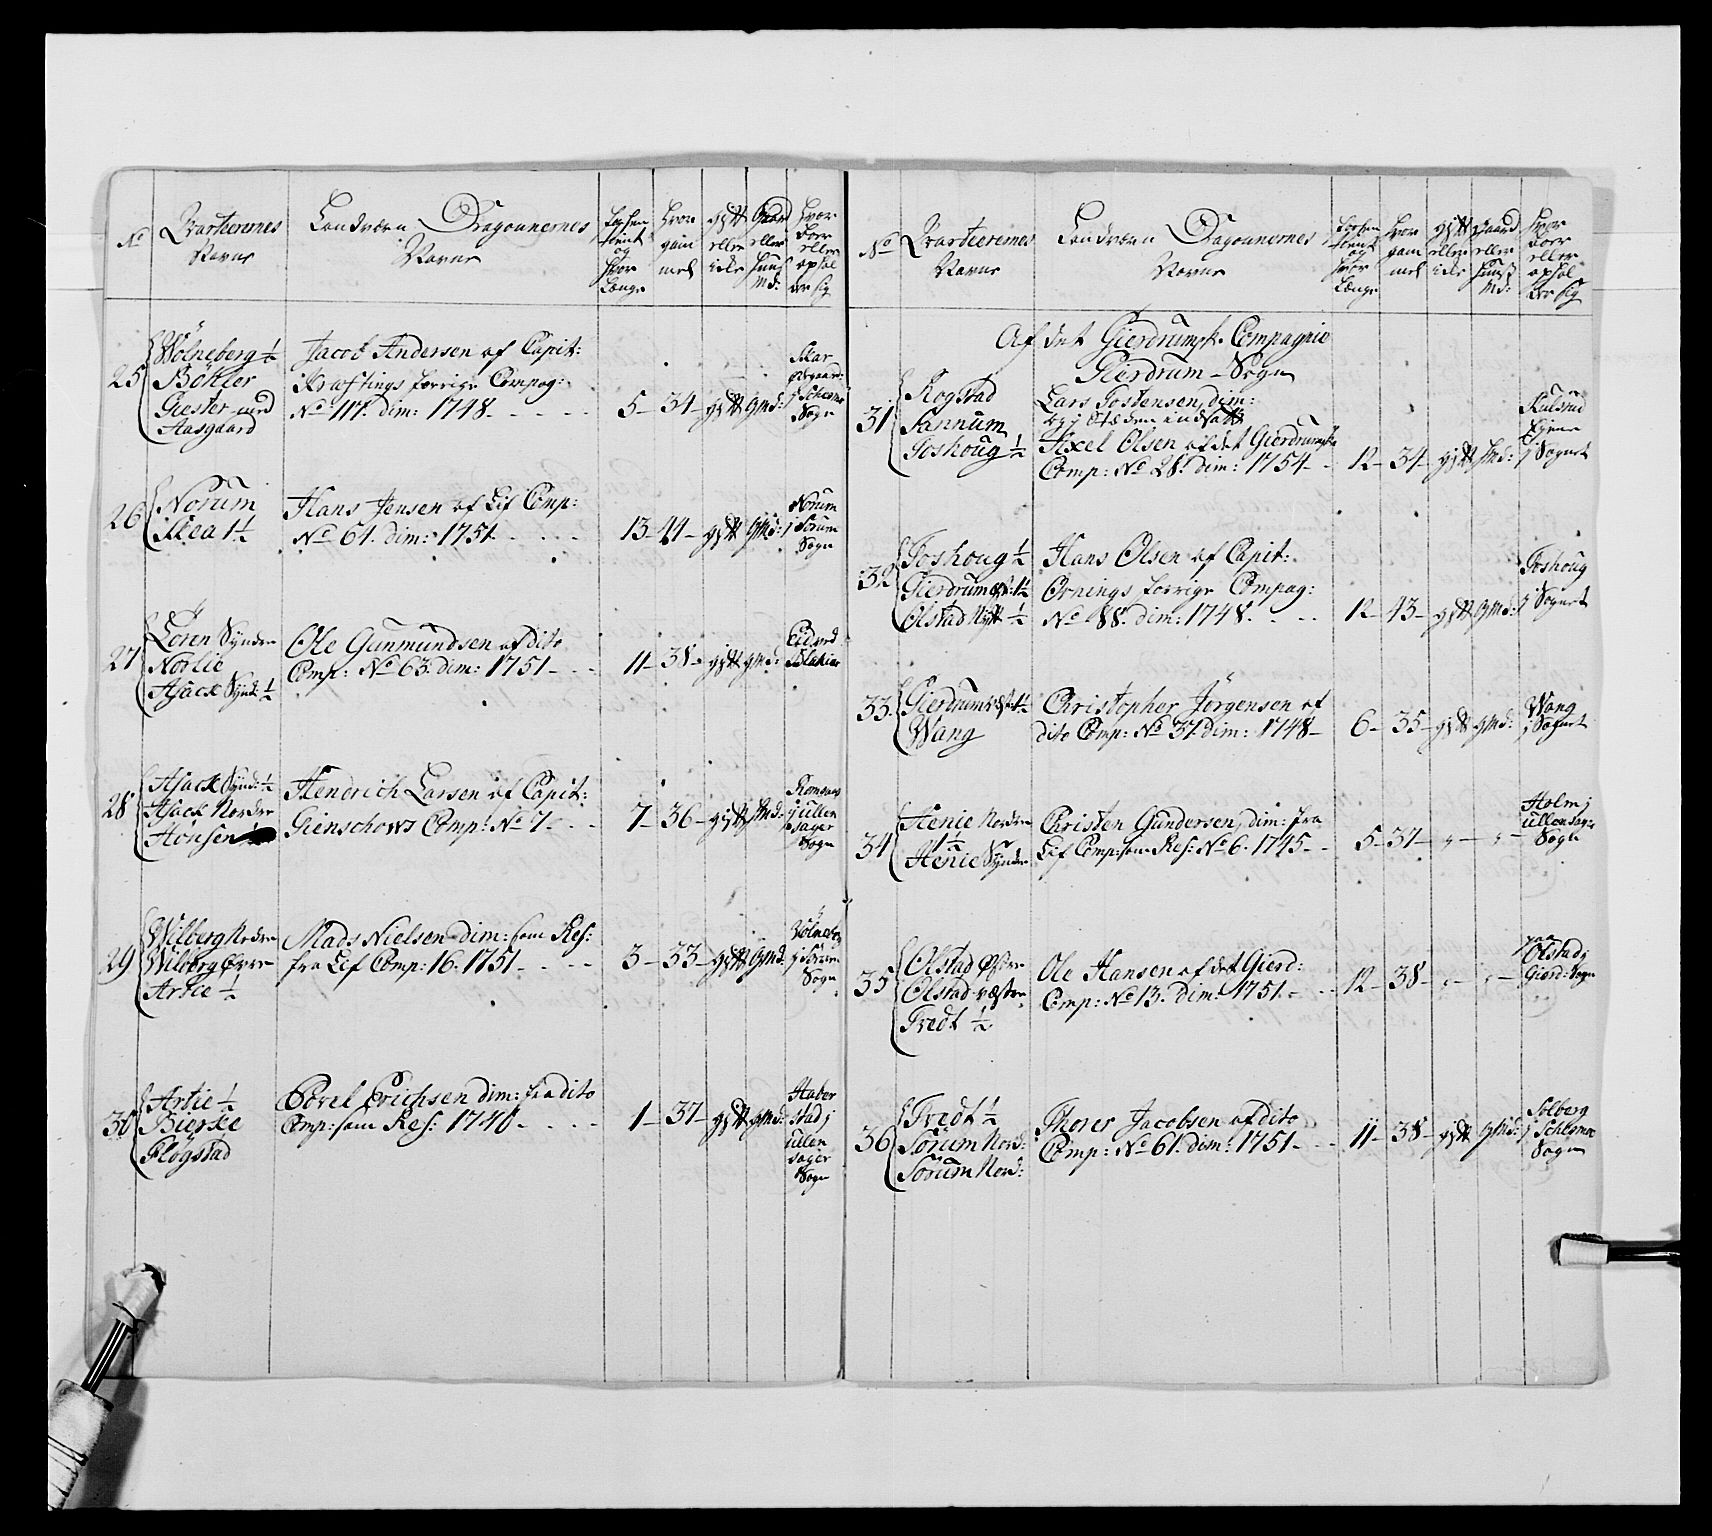 No
Qvarteerenes
Navne
Landværn Dragounernes
Navne
Tochen
tient
og
hvor
længe
hvor
gam
mel
gift
eller
icke
Gaard
eller
huus
Md:
hvor
boer
eller
ophol
der sig
25
Wölneberg ½
Böhler
Giester med
Aasgaard
Jacob Andersen af Capit:
Kraftings forrige Compag:
No 117. dim: 1748
5 34 gift G Md:
Skar
j Schesmo
Sogn
26
Norum
Mea 1½
Hans Jensen af Lif Comp:
No 61. dim: 1751
13 44 gift G Md:
Norum
j Sørum
Sogn
27
Lören Syndre
Norlie
Asack Synd: ½
Ole Gunmundsen af dito
Comp: No 63. dim: 1751
11 38 gift G Md:
Blakier
28
Asack Synd: ½
Asack Nordre
Hönsen ½
Hendrich Larsen af Capit:
Gienschows Comp: No 7
7 36 gift H Md:
j Ullen
sager
Sogn
29
Wilberg Nedre
Wilberg Øvre
Artie ½
Mads Nielsen dim: som Res:
fra Lif Comp: 16. 1751
3 33 gift G Md:
Wölneberg
j Sörum
Sogn
30
Artie ½
Bierke
Flögstad
Povel Erichsen dim: fra dito
Comp: som Res: 1740
1 37 gift G Md:
Haber
stad j
Ullen
sager
Sogn
No
Qvarteerenes
Navne
Landværn Dragounernes
Navne
Tochen
tient
og
hvor
længe
hvor
gam
mel
gift
eller
icke
Gaard
eller
huus
Md:
hvor
boer
eller
ophol
der sig
Af det Gierdrumsk. Compagnie
Gierdrum Sogn
31
Rogstad
Fannum
Toshoug ½
Lars Tostensen, dim:
og j Stæden indsatt
Axel Olsen af det Gierdrumske
Comp: No 28. dim: 1754
12 34 gift H Md:
Kulsrud
Eyene
j Sognet
32
Toshoug ½
Gierdrum øst: 1½
Olstad Nytt ½
Hans Olsen af Capit:
Ornings forrige Compag:
No 88. dim: 1748
12 43 gift G Md:
Toshoug
j Sognet
33
Gierdrum væst: 1½
Wang
Christopher Jörgensen af
dito Comp: No 31. dim: 1748
6 35 gift G Md:
Wang
j Sognet
34
Henie Nordre
1½
Henie Syndre
Christen Gundersen, dim: fra
Lif Comp: som Res: No 6. 1745
5 37 " "
Holm j
Ullensager
Sogn
35
Olstad Østre
Olstad væstre
Tredt ½
Ole Hansen af det Gierd:
Comp: No 13. dim: 1751
12 38 " "
Paa
Olstad j
Gierd: Sogn
36
Tredt ½
Sörum Nord:
Sörum Nord:
Thorer Jacobsen af dito
Comp: No 61. dim: 1751
11 38 gift G Md:
Solberg
j Schesmoe
Sogn